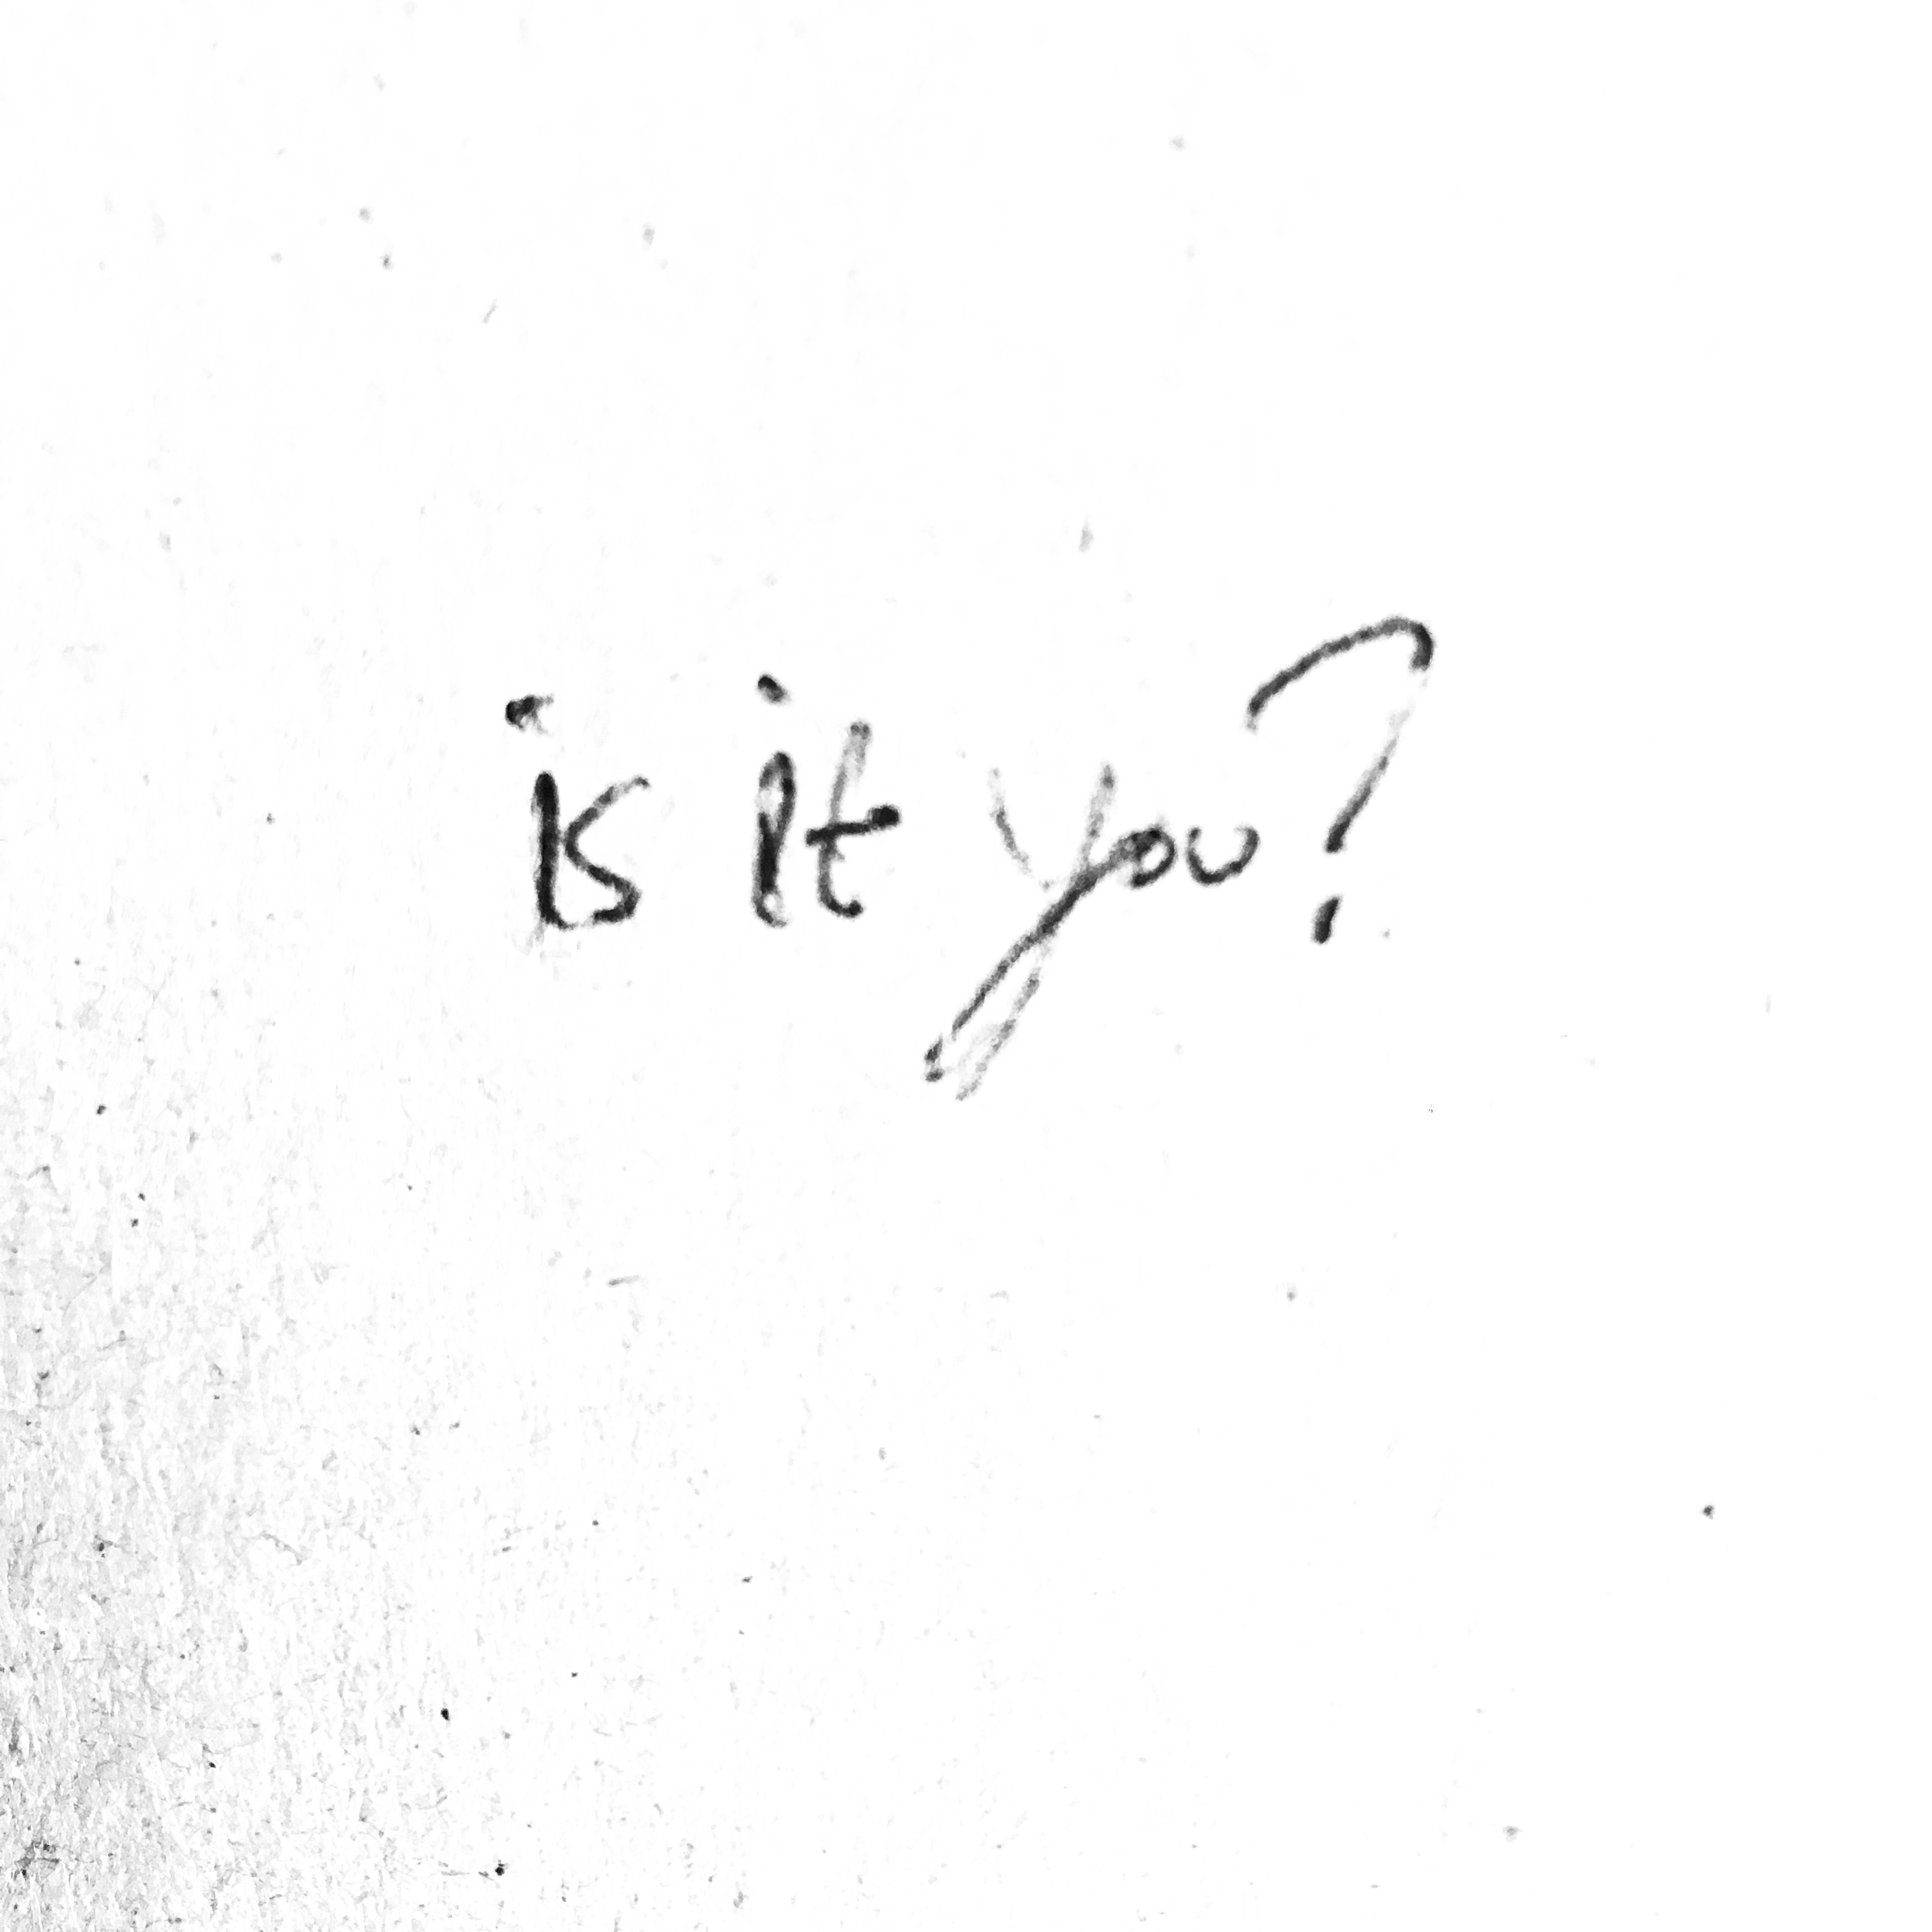 is it you?